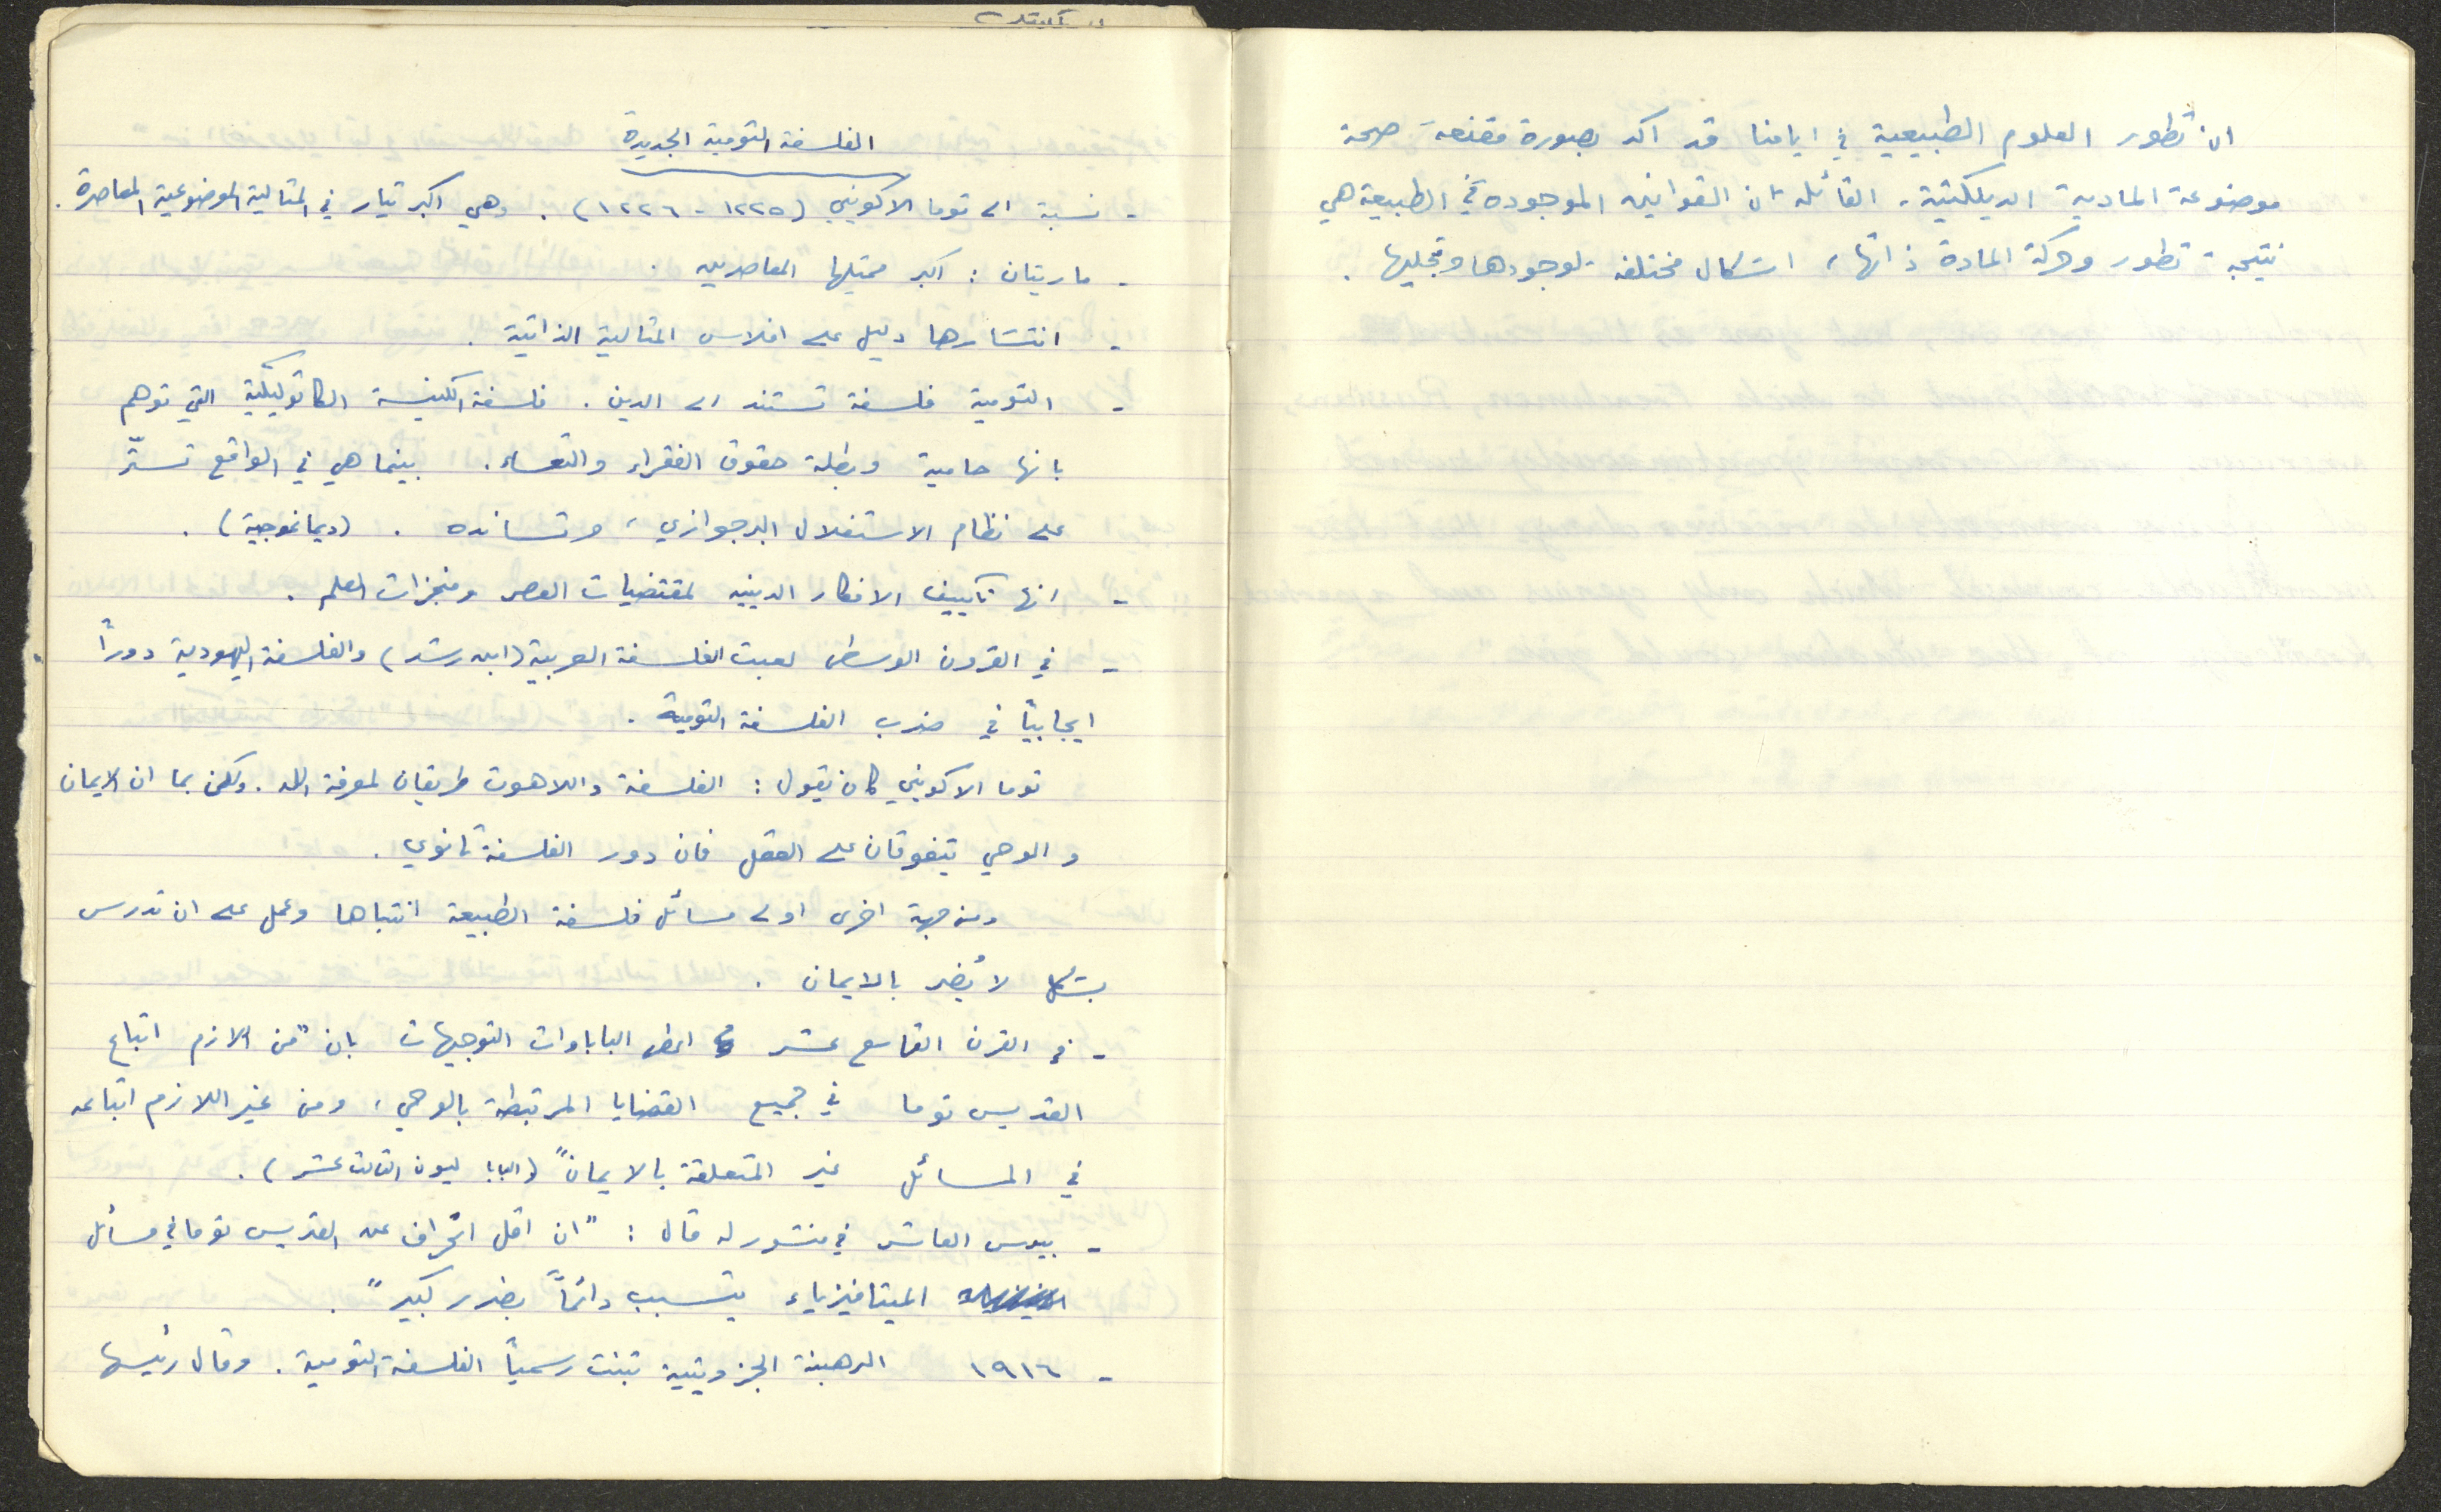 ان تطور العلوم الطبيعية في ايامنا قد اكد بصورة مقنعة صحة
موضوعة المادية الديلكتية، القائله ان القوانين الموجوده في الطبيعة هي
نتيجة تطور وحركة المادة ذاتها، اشكال مختلفه لوجودها وتجليها .
الفلسفة التومية الجديدة
- نسبة الى توما الاكويني (١٢٢٥ - ١٢٢٦) . وهي اكبر تيار في المثالية الموضوعية المعاصرة .
- ماريتان : اكبر ممثليها المعاصرين .
- انتشارها دليل على افلاس المثالية الذاتية .
- التومية فلسفة تستند الى الدين . فلسفة الكنيسة الكاثوليكية التي توهم
بانها حامية وبطلة حقوق الفقراء والتعساء . بينما هي في الواقع تستّر
على نظام الاستغلال البرجوازي، وتسانده . (ديماغوجية) .
- انها تكييف الافكار الدينيه لمقتضيات العصر ومنجزات العلم .
- في القرون الوسطى لعبت الفلسفة العربية (ابن رشد) والفلسفة اليهودية دوراً
ايجابيّاً في ضرب الفلسفة التومية .
توما الاكويني كان يقول : الفلسفة واللاهوت طريقان لمعرفة الله . ولكن بما ان الايمان
والوحي يتفوقان على العقل فان دور الفلسفة ثانوي .
ومن جهة اخرى اولى مسائل فلسفة الطبيعة انتباها وعمل على ان تدرس
بشكل لا يُضر بالايمان .
- في القرن التاسع عشر اعطى الباباوات التوجيهات بان "من الازم اتباع
القديس توما في جميع القضايا المرتبطة بالوحي، ومن غير اللازم اتباعه
في المسائل غير المتعلقة بالايمان" (البابا ليون الثالث عشر) .
- بيوس العاشر في منشور له قال : "ان اقل انحراف عن القديس توما في مسائل
الميتافيزياء يتسبب دائماً بضرر كبير" .
- ١٩١٦ الرهبنة الجزويتية تبنت رسمياً الفلسفة التومية . وقال رئيسها